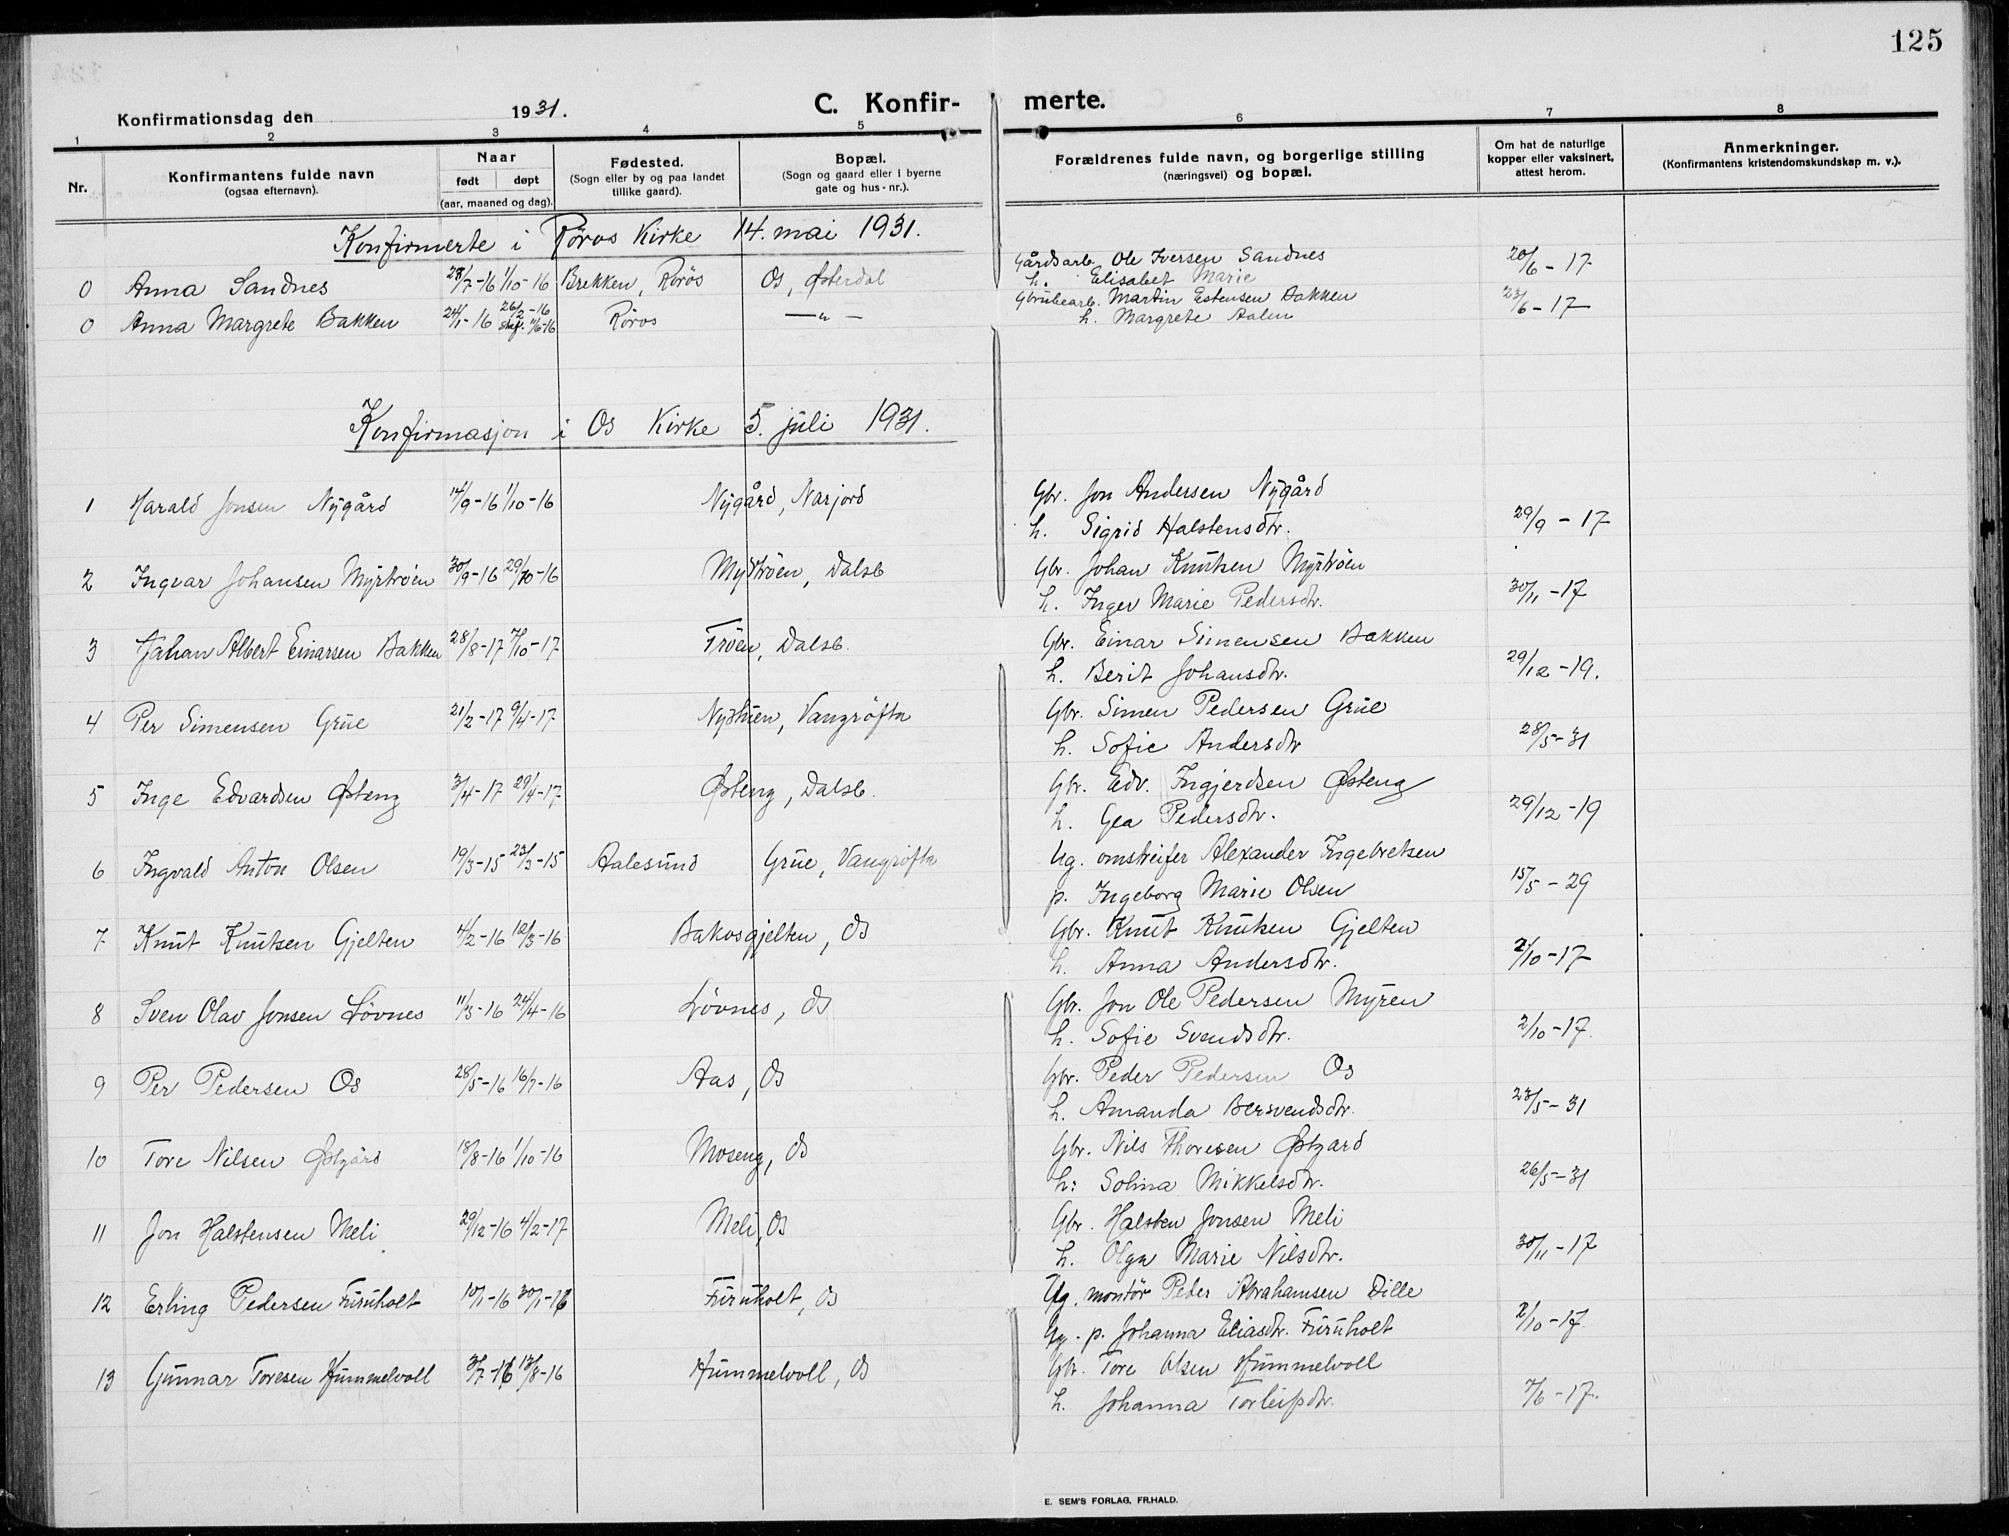 125
Konfirmationsdag den 1931. C. Konfir- merte.
1 2 3 4 5 6 7 8
Nr. Konfirmantens fulde navn (ogsaa efternavn). Naar født døpt (aar, maaned og dag). Fødested. (Sogn eller by og paa landet tillike gaard). Bopæl. (Sogn og gaard eller i byerne gate og hus-nr.). Forældrenes fulde navn, og borgerlige stilling (næringsvei) og bopæl. Om hat de naturlige kopper eller vaksinert, attest herom. Anmerkninger. (Konfirmantens kristendomskundskap m. v.).
Konfirmerte i Røros Kirke 14. mai 1931.
0 Anna Sandnes 28/7-16 1/10-16 Brekken, Rørøs Os, Østerdal Gårdsarb. Ole Iversen Sandnes 20/6-17
h. Elisabet Marie
0 Anna Margrete Bakken 24/1-16 26/2-16 Røros —„— Gbrukearb. Martin Estensen Bakken 23/6-17
h. Margrete Aalen
Konfirmasjon i Os Kirke 5. juli 1931.
1 Harald Jonsen Nygård 14/9-16 1/10-16 Nygård, Narjord Gbr. Jon Andersen Nygård
h. Sigrid Halstensdtr. 29/9-17
2 Ingvar Johansen Myrtrøen 30/9-16 29/10-16 Myrtrøen, Dalsb Gbr. Johan Knutsen Myrtrøen
h. Inger Marie Pedersdtr. 30/11-17
3 Johan Albert Einarsen Bakken 28/8-17 7/10-17 Trøen, Dalsb. Gbr. Einar Simensen Bakken
h. Berit Johansdtr. 29/12-19.
4 Per Simensen Grue 21/2-17 9/4-17 Nystuen, Vangrøfta Gbr. Simen Pedersen Grue
h. Sofie Andersdtr 28/5-31
5 Inge Edvardsen Østeng 3/4-17 29/4-17 Østeng, Dalsb. Gbr. Edv. Ingjerdsen Østeng
h. Gea Pedersdtr. 29/12-19
6 Ingvald Anton Olsen 19/3-15 23/3-15 Aalesund Grue, Vangrøfta Ug. omstreifer Alexander Ingebretsen
p. Ingeborg Marie Olsen 15/5-29
7 Knut Knutsen Gjelten 4/2-16 12/3-16 Bakosgjelten, Os Gbr. Knut Knutsen Gjelten
h. Anna Andersdtr. 2/10-17
8 Sven Olav Jonsen Løvnes 11/3-16 24/4-16 Løvnes, Os Gbr. Jon Ole Pedersen Myren
h. Sofie Svendsdtr. 2/10-17.
9 Per Pedersen Os 28/5-16 16/7-16 Aas, Os Gbr. Peder Pedersen Os
h. Amanda Bersvendsdtr. 23/5-31
10 Tore Nilsen Østgård 18/8-16 1/10-16 Moseng, Os Gbr. Nils Thoresen Østgard
h: Solina Mikkelsdtr. 26/5-31
11 Jon Halstensen Meli 29/12-16 4/2-17 Meli, Os Gbr. Halsten Jonsen Meli
h. Olga Marie Nilsdtr. 30/11-17
12 Erling Pedersen Furuholt 10/1-16 30/1-16 Furuholt, Os Ug. montør Peder Abrahamsen Dille
Ug. p. Johanna Eliasdtr. Furuholt 2/10-17
13 Gunnar Toresen Hummelvoll 3/7-16 13/8-16 Hummelvoll, Os Gbr. Tore Olsen Hummelvoll
h. Johanna Torleifsdtr. 7/6-17.
E. SEM'S FORLAG, FR.HALD.